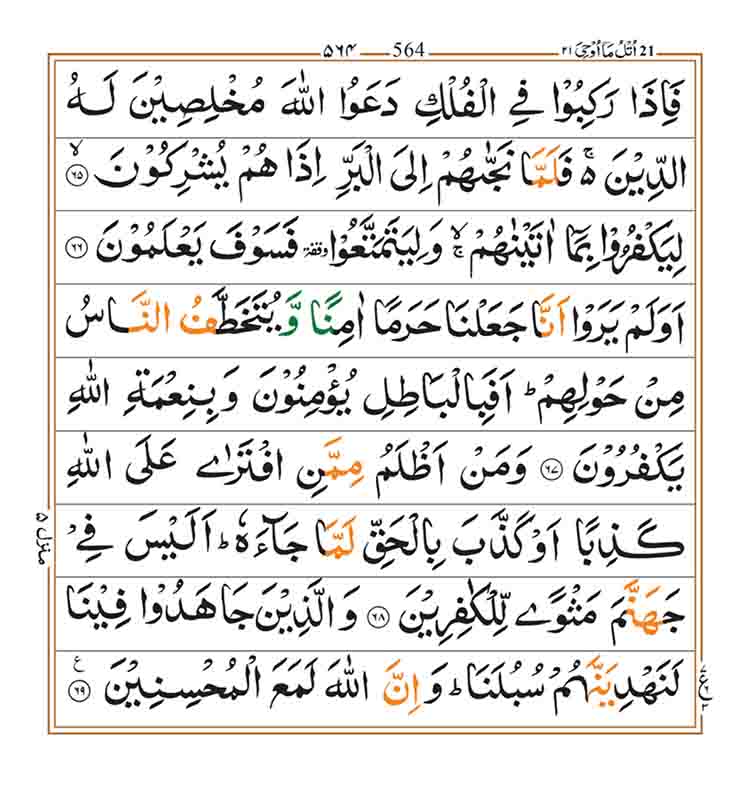 ۵۶۴ 564 اُتْلُ مَا اُوْحِیَ ۲۱ 21
فَاِذَا رَكِبُوْا فِی الْفُلْكِ دَعَوُا اللّٰهَ مُخْلِصِیْنَ لَهُ
الدِّیْنَ ەۚ فَلَمَّا نَجّٰىهُمْ اِلَى الْبَرِّ اِذَا هُمْ یُشْرِكُوْنَۙ ۶۵
لِیَكْفُرُوْا بِمَاۤ اٰتَیْنٰهُمْ ۙۚ وَلِیَتَمَتَّعُوْا وقفة فَسَوْفَ یَعْلَمُوْنَ ۶۶
اَوَلَمْ یَرَوْا اَنَّا جَعَلْنَا حَرَمًا اٰمِنًا وَّیُتَخَطَّفُ النَّاسُ
مِنْ حَوْلِهِمْ ؕ اَفَبِالْبَاطِلِ یُؤْمِنُوْنَ وَبِنِعْمَةِ اللّٰهِ
یَكْفُرُوْنَ ۶۷ وَمَنْ اَظْلَمُ مِمَّنِ افْتَرٰى عَلَى اللّٰهِ
كَذِبًا اَوْ كَذَّبَ بِالْحَقِّ لَمَّا جَآءَهٗ ؕ اَلَیْسَ فِیْ
جَهَنَّمَ مَثْوًى لِّلْكٰفِرِیْنَ ۶۸ وَالَّذِیْنَ جَاهَدُوْا فِیْنَا
لَنَهْدِیَنَّهُمْ سُبُلَنَا ؕ وَاِنَّ اللّٰهَ لَمَعَ الْمُحْسِنِیْنَ ۶۹ ع
منزل ۵